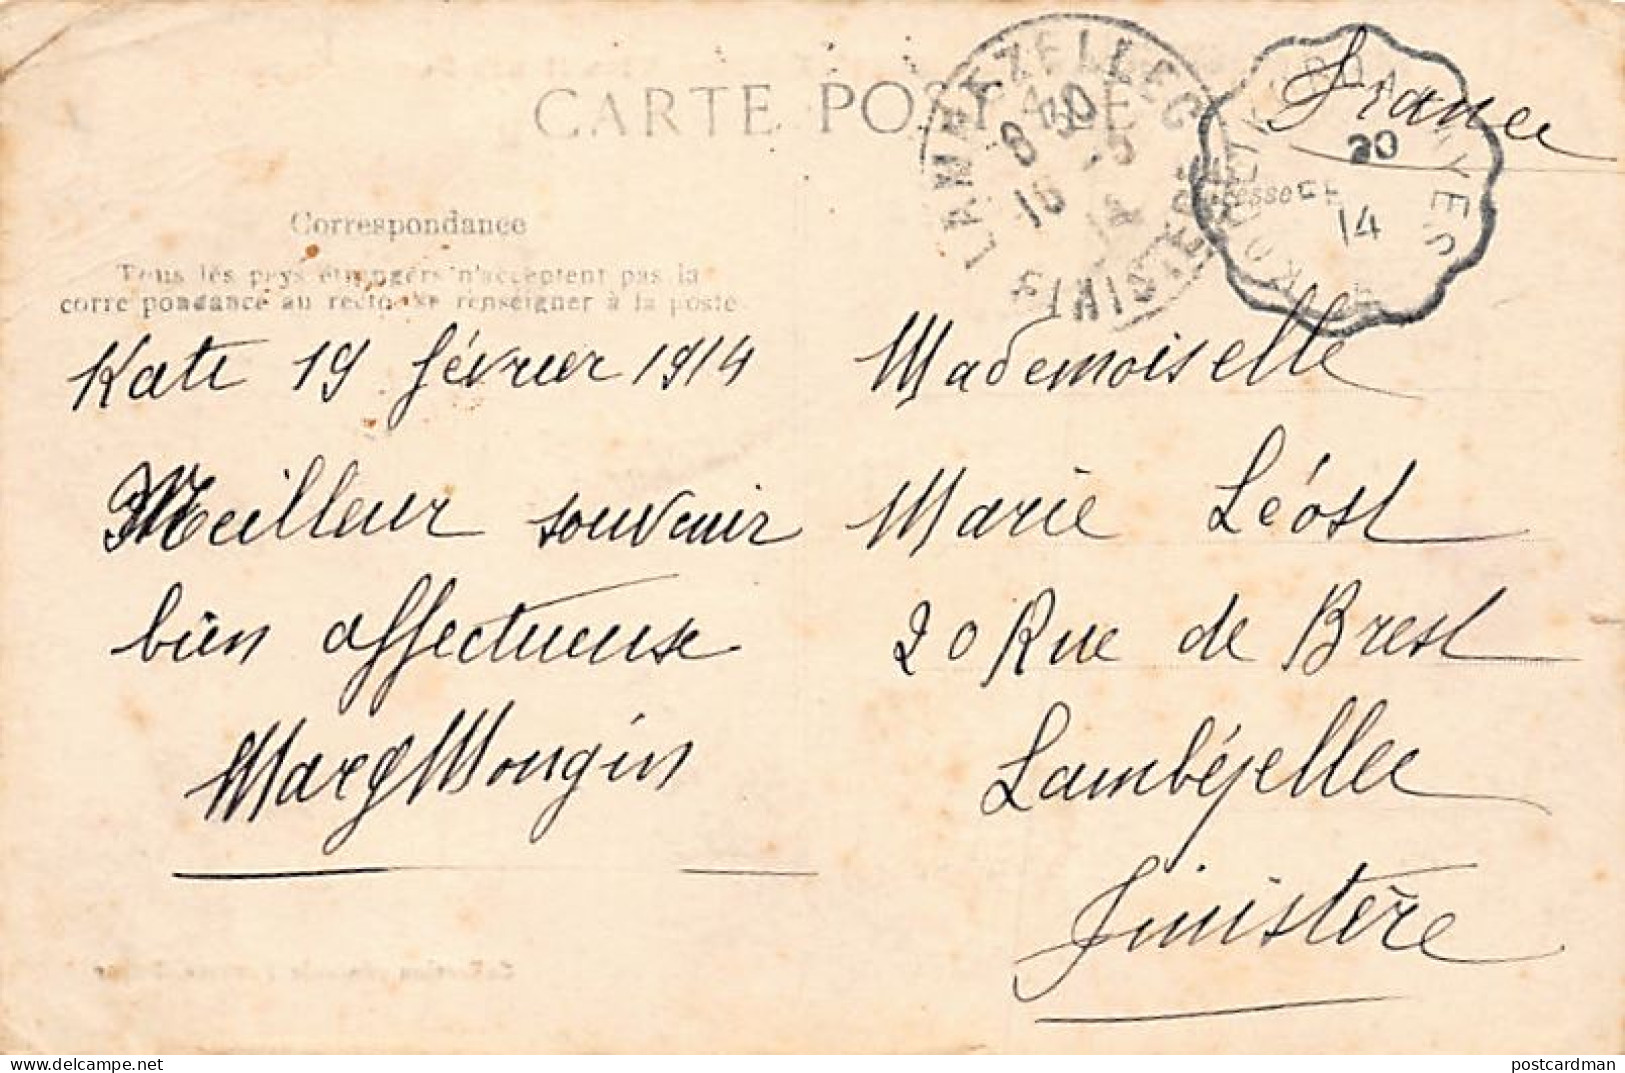 CARTE POSTALE
France
Correspondance
Tous les pays étrangers n'acceptent pas la
correspondance au recto se renseigner à la poste
Kati 19 février 1914
Meilleur souvenir
bien affectueuse
Marg Mougin
Mademoiselle
Marie Léost
20 Rue de Brest
Lambézellec
Finistère
LAMBEZELLEC
FINISTERE
20
14
delcampe.net
postcardman